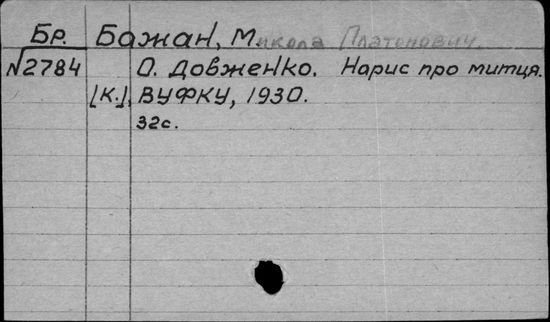 Бр. Бажан, Микола Платонович.
№2784 О. Довженко. Нарис про митця.
[К.], ВУФКУ, 1930.
32с.